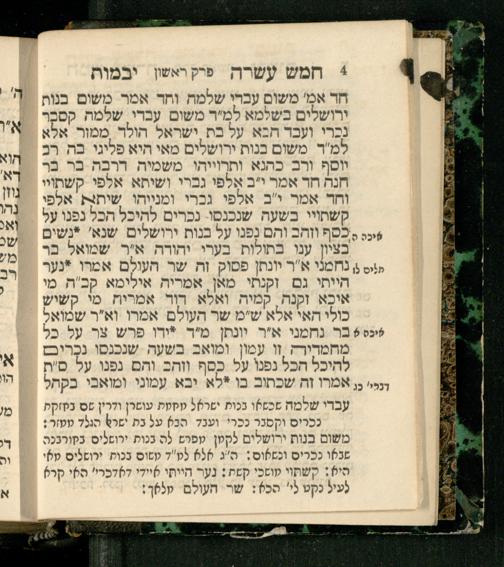 4 חמש עשרה פרק ראשון יבמות
חד אמ' משום עבדי שלמה וחד אמר משום בנות
ירושלים בשלמא למ"ד משום עבדי שלמה קסבר
נכרי ועבד הבא על בת ישראל הולד ממזר אלא
למ"ד משום בנות ירושלים מאי היא פליגי בה רב
יוסף ורב כהנא ותרוייהו משמיה דרבה בר בר
חנה חד אמר י"ב אלפי גברי ושיתא אלפי קשתויי
וחד אמר י"ב אלפי גברי ומנייהו שיתא אלפי
קשתויי בשעה שנכנסו נכרים להיכל הכל נפנו על
כסף וזהב והם נפנו על בנות ירושלים שנא' *נשים
איכה ה
בציון ענו בתולות בערי יהודה א"ר שמואל בר
נחמני א"ר יונתן פסוק זה שר העולם אמרו *נער
תלים לז
הייתי גם זקנתי מאן אמריה אילימא קב"ה מי
איכא זקנה קמיה ואלא דוד אמריה מי קשיש
כולי האי אלא ש"מ שר העולם אמרו וא"ר שמואל
בר נחמני א"ר יונתן מ"ד *ידו פרש צר על כל
איכה א
מחמדיה זו עמון ומואב בשעה שנכנסו נכרים
להיכל הכל נפנו על כסף וזהב והם נפנו על ס"ת
אמרו זה שכתוב בו *לא יבא עמוני ומואבי בקהל
דברי' כג
עבדי שלמה שנשאו בנות ישראל מחמת עושרן ודרין שם בחזקת
נכרים וקסבר נכרי ועבד הבא על בת ישראל הולד ממזר:
משום בנות ירושלים לקמן מפרש לה בנות ירושלים בחורבנה
שבאו נכרים ונשאום: ה"ג אלא למ"ד משום בנות ירושלים מאי
היא: קשתוי מושכי קשת: נער הייתי איידי דאדכרי' האי קרא
לעיל נקט לי' הכא: שר העולם מלאך: